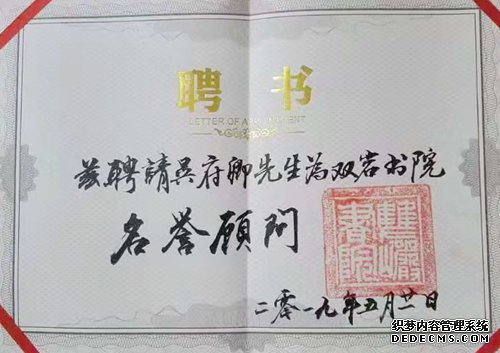 聘书
LETTER OF APPOINTMENT
兹聘請吴府卿先生为双岩书院
名誉顾问
雙巖書院
二零一九年五月廿一日
织梦内容管理系统
DEDECMS.COM